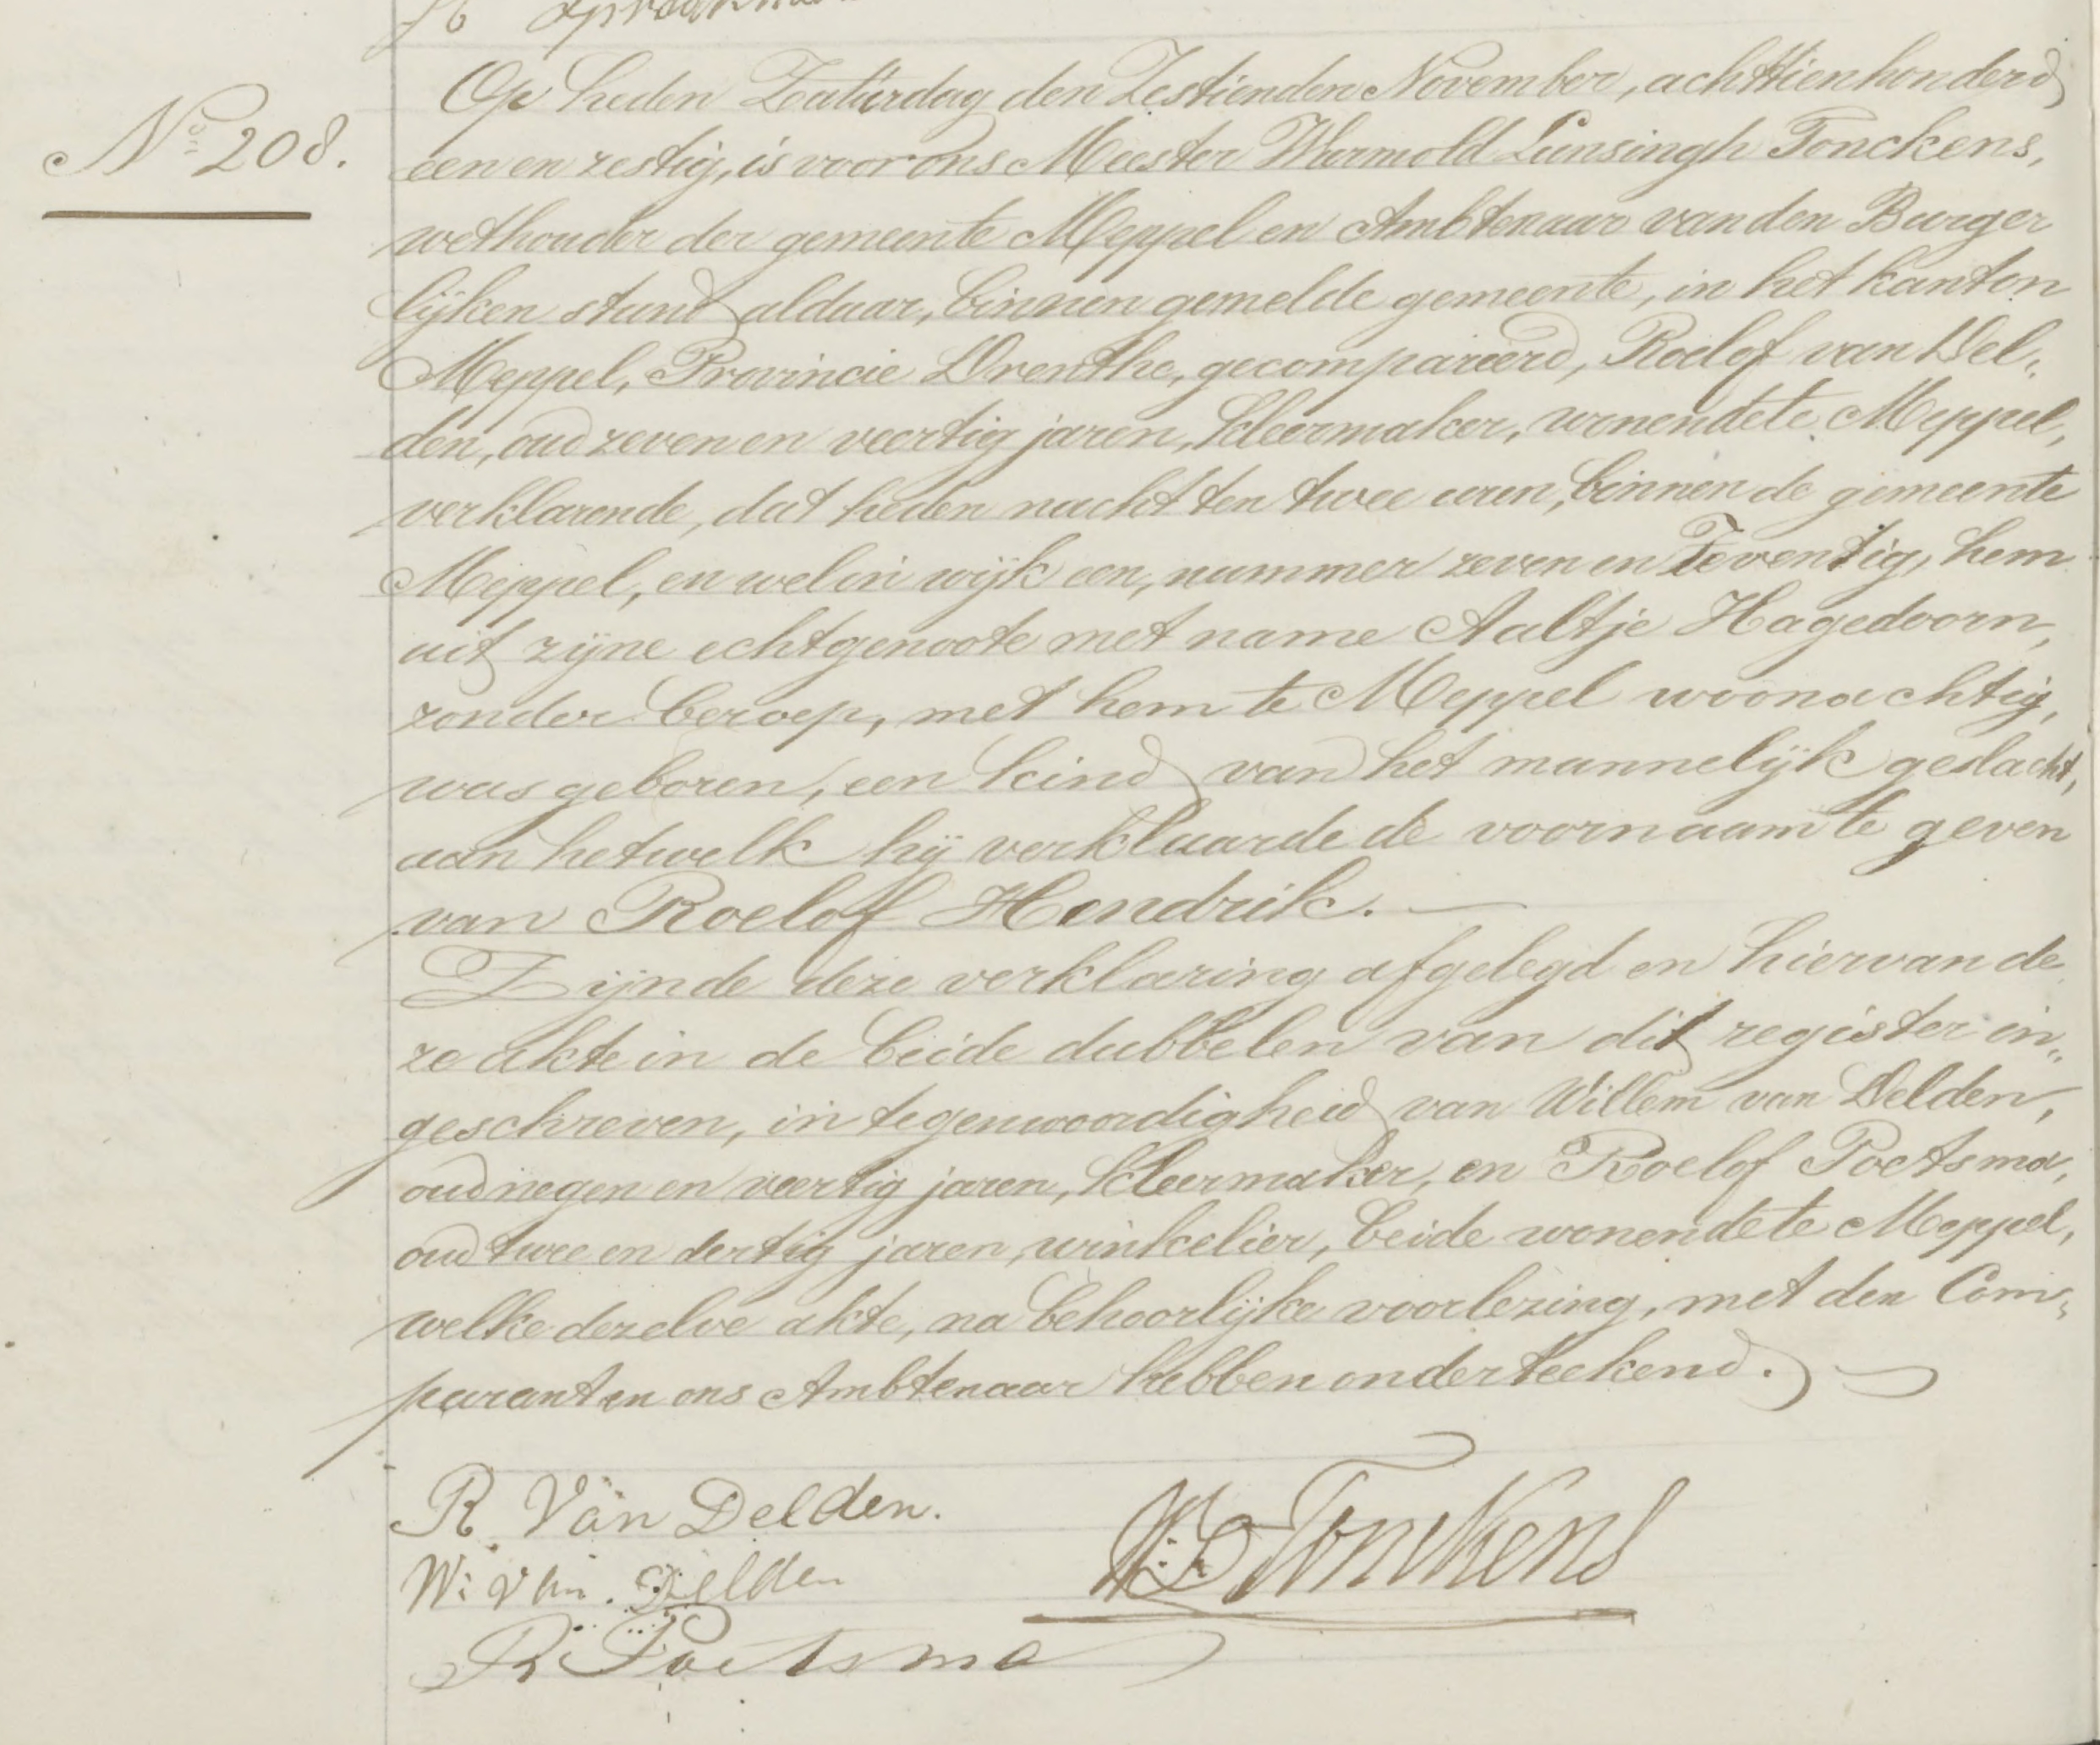 Nº 208.
Op heden Zaturdag den Zestienden November, achttienhonderd
een en zestig, is voor ons Meester Warmold Lunsingh Tonckens,
wethouder der gemeente Meppel en Ambtenaar van den Burger
lijken stand aldaar, binnen gemelde gemeente, in het kanton
Meppel, Provincie Drenthe, gecompareerd, Roelof van Del„
den, oud zeven en veertig jaren, kleermaker, wonende te Meppel,
verklarende, dat heden nacht ten twee uren, binnen de gemeente
Meppel, en wel in wijk een, nummer zeven en Zeventig, hem
uit zijne echtgenoote met name Aaltje Hagedoorn,
zonder beroep, met hem te Meppel woonachtig,
was geboren, een kind van het mannelijk geslacht,
aan hetwelk hij verklaarde de voornaam te geven
van Roelof Hendrik.
Zijnde deze verklaring afgelegd en hiervan de
ze akte in de beide dubbelen van dit register in„
geschreven, in tegenwoordigheid van Willem van Delden,
oud negen en veertig jaren, kleermaker, en Roelof Poetsma,
oud twee en dertig jaren, winkelier, beide wonende te Meppel,
welke dezelve akte, na behoorlijke voorlezing, met den Com„
parant en ons Ambtenaar hebben onderteekend.
R. Van Delden.
W: van. Delden
W L Tonckens
R Poetsma